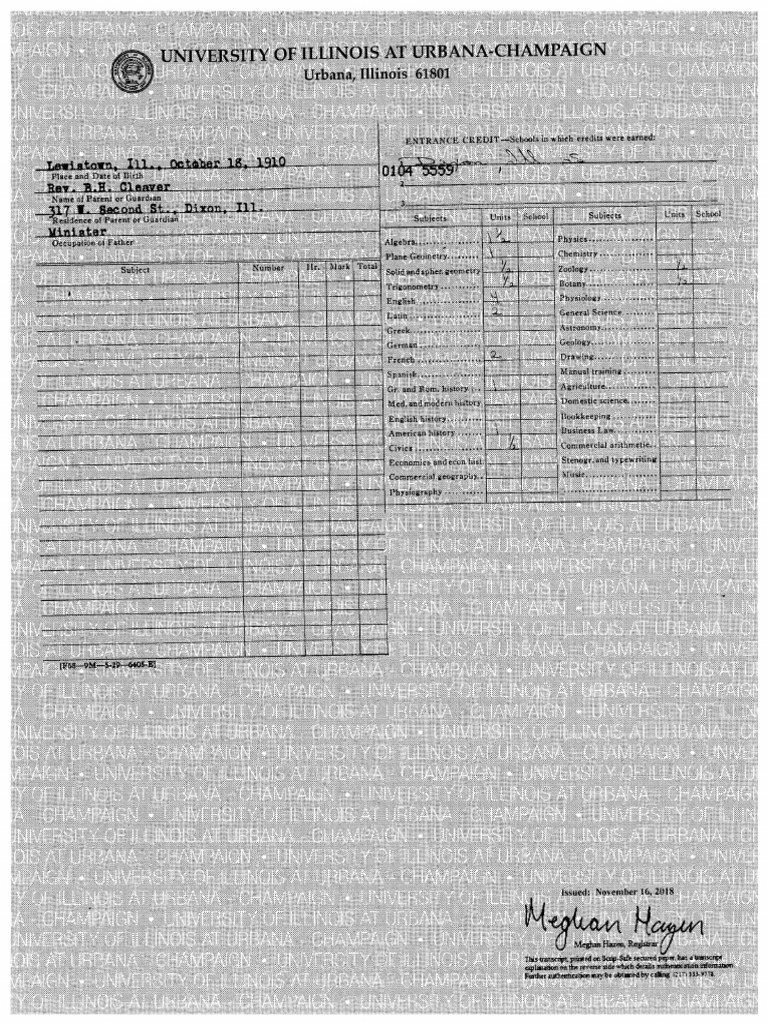 UNIVERSITY OF ILLINOIS AT URBANA-CHAMPAIGN
Urbana, Illinois 61801
Lewistown, Ill., October 18, 1910
Place and Date of Birth
Rev. B.H. Cleaver
Name of Parent or Guardian
317 W. Second St., Dixon, Ill.
Residence of Parent or Guardian
Minister
Occupation of Father
Subject Number Hr. Mark Total
[F58—9M—5-29—6405-E]
ENTRANCE CREDIT—Schools in which credits were earned:
1 Ill.
0104 5559
2
3
Subjects Units School Subjects Units School
Algebra 1 1/2 Physics
Plane Geometry 1 Chemistry
Solid and spher. geometry 1/2 Zoology 1/2
Trigonometry 1/2 Botany 1/2
English 4 Physiology
Latin 2 General Science
Greek Astronomy
German Geology
French 2 Drawing
Spanish Manual training
Gr. and Rom. history 1 Agriculture
Med. and modern history Domestic science
English history Bookkeeping
American history 1 Business Law
Civics 1/2 Commercial arithmetic
Economics and econ hist Stenogr. and typewriting
Commercial geography Music
Physiography
Issued: November 16, 2018
Meghan Hazen
Meghan Hazen, Registrar
This transcript, printed on Scrip-Safe secured paper, has a transcript
explanation on the reverse side which details authentication information.
Further authentication may be obtained by calling (217) 333-9778